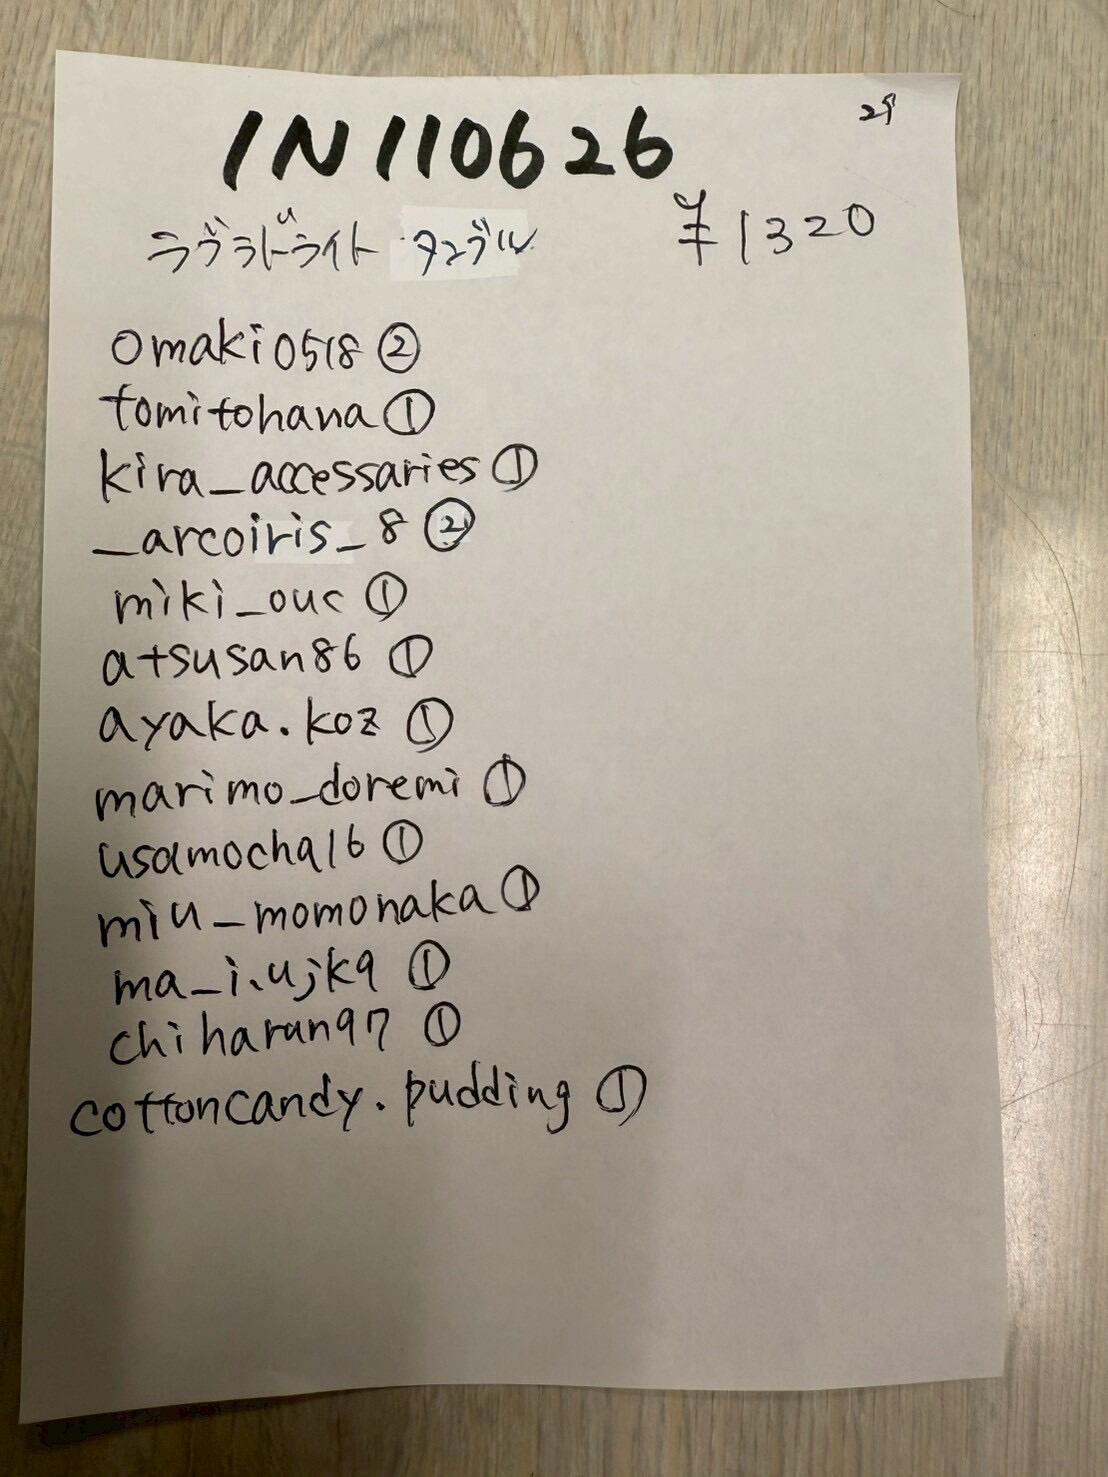 29
IN110626
ラブラドライト タンブル ¥1320
omaki0518 ②
tomitohana ①
kira_accessaries ①
_arcoiris_8 ②
miki_ouc ①
atsusan86 ①
ayaka.koz ①
marimo_doremi ①
usamocha16 ①
miu_momonaka ①
ma_i.ujk9 ①
chiharun97 ①
cottoncandy.pudding ①